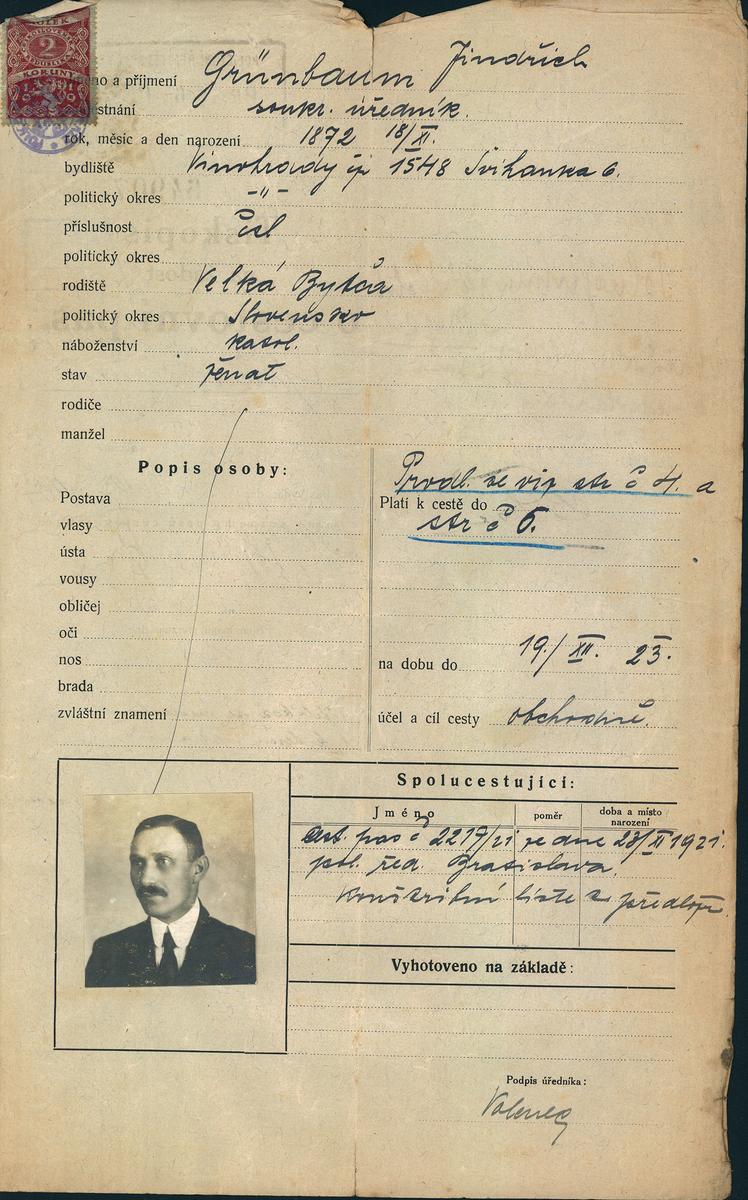 KOLEK
2
KORUNY
Jméno a příjmení Grünbaum Jindřich
zaměstnání soukr. úředník.
rok, měsíc a den narození 1872 18/XI.
bydliště Vinohrady čp 1548 Švihanka 6.
politický okres -"-
příslušnost čsl
politický okres
rodiště Velká Bytča
politický okres Slovensko
náboženství katol.
stav ženat
rodiče
manžel
Popis osoby:
Postava
vlasy
ústa
vousy
obličej
oči
nos
brada
zvláštní znamení
Prodl. se viz str č 4. a
Platí k cestě do
str č 5.
na dobu do 19./XII. 23.
účel a cíl cesty obchodně.
Spolucestující:
Jméno poměr doba a místo narození
cest. pas č 2217/21 ze dne 23/XI 1921.
pol. řed. Bratislava.
liste
Vyhotoveno na základě:
Podpis úředníka: